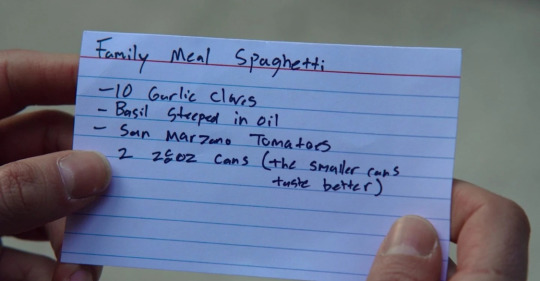 Family Meal Spaghetti
- 10 Garlic Cloves
- Basil steeped in oil
- San Marzano Tomatoes
2 28oz cans (the smaller cans
taste better)